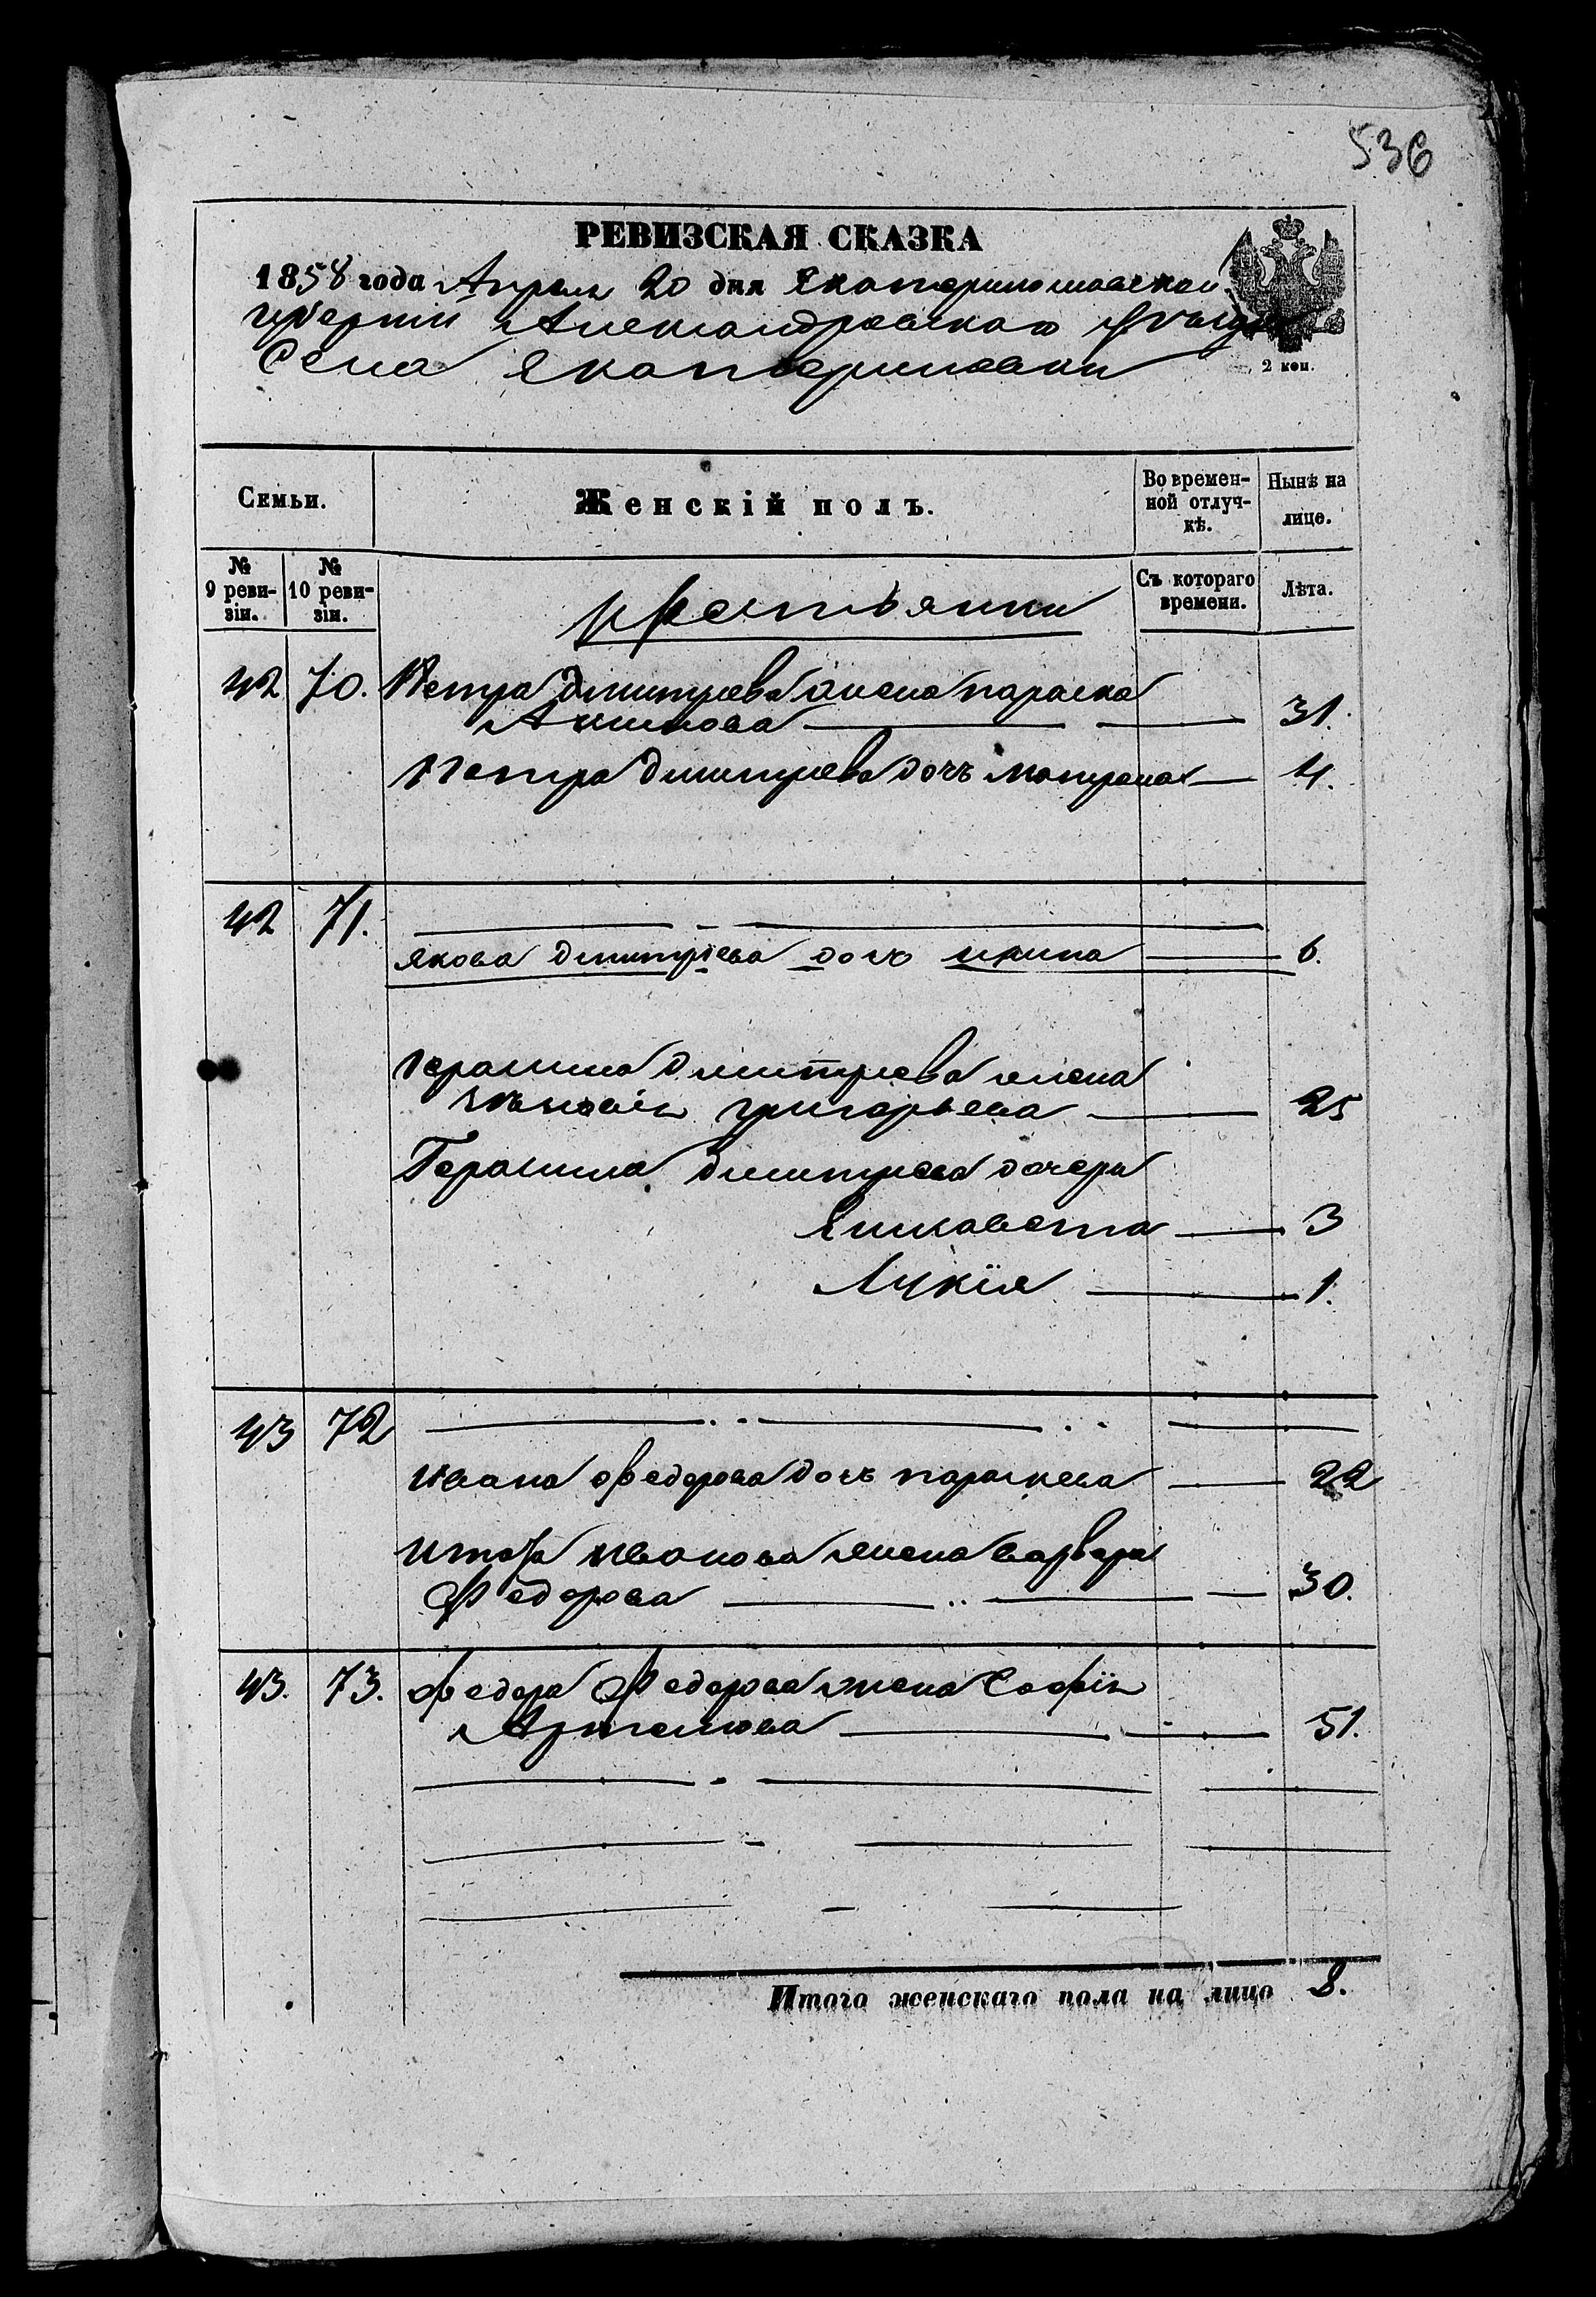 536
РЕВИЗСКАЯ СКАЗКА
1858 года Апреля 20 дня Екатеринославской
губернии Александровского уезда
Села Екатериновки
2 коп.
Семьи.
Женскій полъ.
Во времен-
ной отлуч-
кѣ.
Нынѣ на
лице.
№
9 реви-
зіи.
№
10 реви-
зіи.
крестьянки
Съ котораго
времени.
Лѣта.
42 70. Петра Дмитриева жена параска
Акимова 31.
Петра Дмитриева дочь Матрона 4.
42 71.
Якова Дмитриева дочь 6.
Герасима Дмитриева жена
григорьева 25
Герасима Дмитриева дочери
Елисавета 3
Лукія 1.
43 72
Ивана Федорова дочь параскева 22
Иванова жена варвара
Федорова 30.
43. 73. Федора Федорова жена Софія
Артемова 51.
Итого женскаго пола на лицо 8.